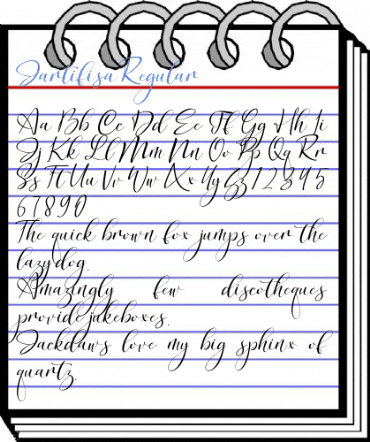 Jartilisa Regular
Aa Bb Cc Dd Ee Ff Gg Hh Ii
Jj Kk Ll Mm Nn Oo Pp Qq Rr
Ss Tt Uu Vv Ww Xx Yy Zz 1 2 3 4 5
6 7 8 9 0
The quick brown fox jumps over the
lazy dog.
Amazingly few discotheques
provide jukeboxes.
Jackdaws love my big sphinx of
quartz.